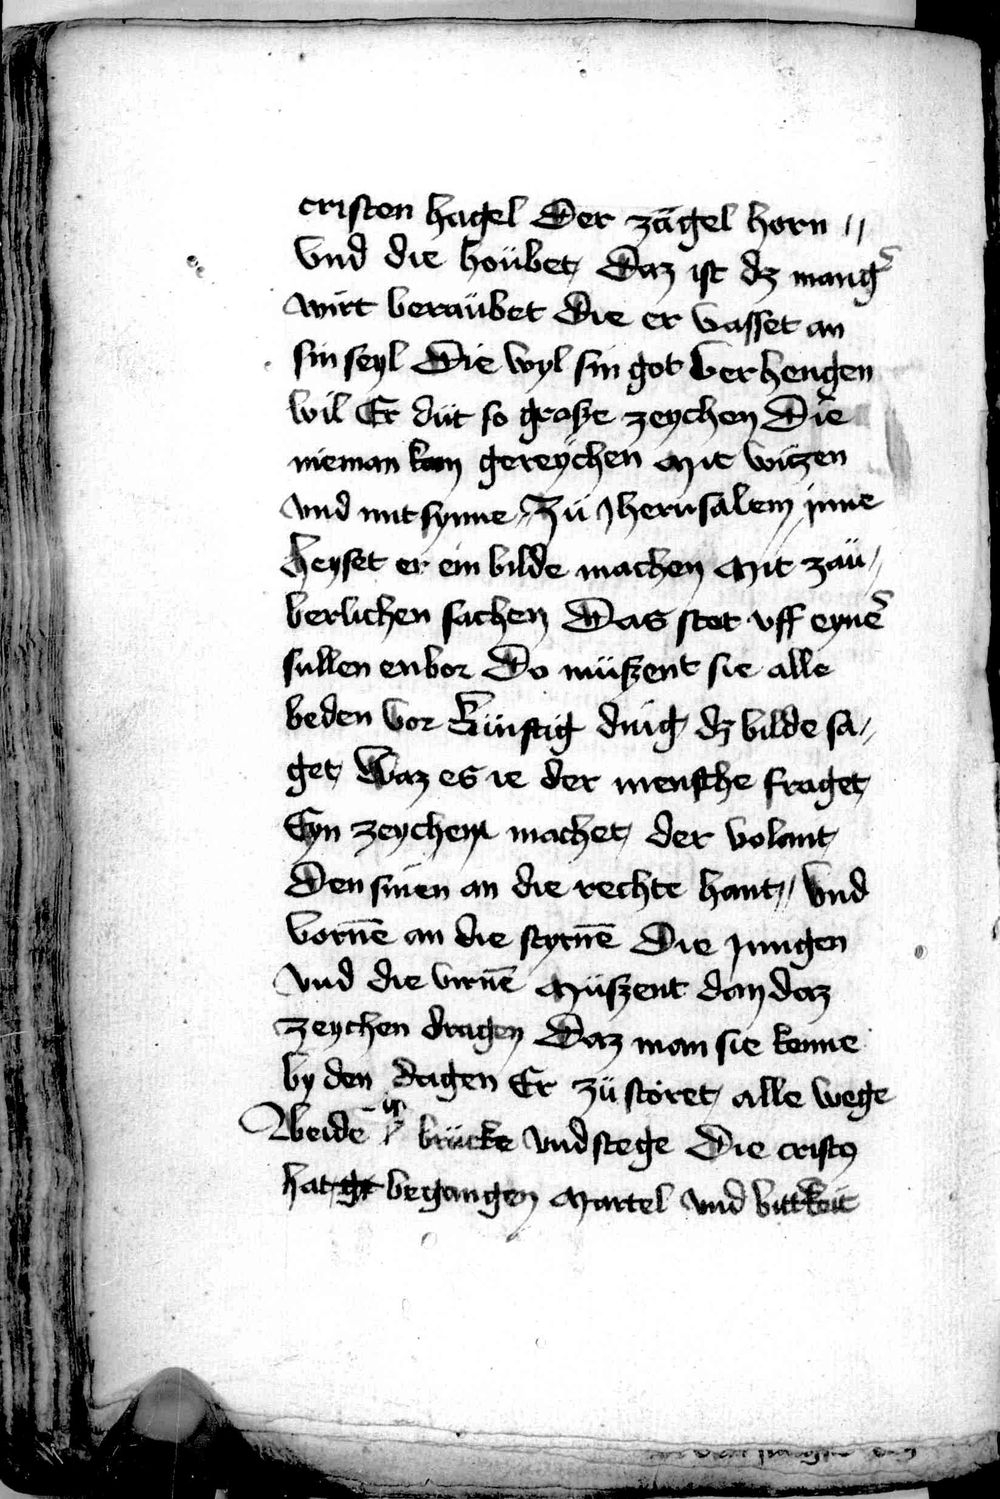 cristen hagel Der zägel horn //
Vnd die hoübet Daz ist dz mangˀ
wirt beraübet Die er vasset an
sin seyl Die wyl sin got verhengen
wil Er düt so große zeychen Die
nieman kan gereychen Mit witzen
vnd mit synne // Zü Jherusalem jnne
heyset er ein bilde machen Mit zaü//
berlichen sachen Das stot vff eynˀ
sullen enbor Do müßent sie alle
beden vor Künftig ding dz bilde sa//
get Waz es ie der mensche fraget
Eyn zeychen machet der volant
Den sinen an die rechte hant // Vnd
vorn̄e an die styrn̄e Die jungen
Vnd die virn̄e Müßent dan daz
zeychen dragen Daz man sie kenne
by den dagen Er zü störet alle wege
Weide brücke vnd stege Die cristꝰ
hat ge begangen Martel vnd bittkeit